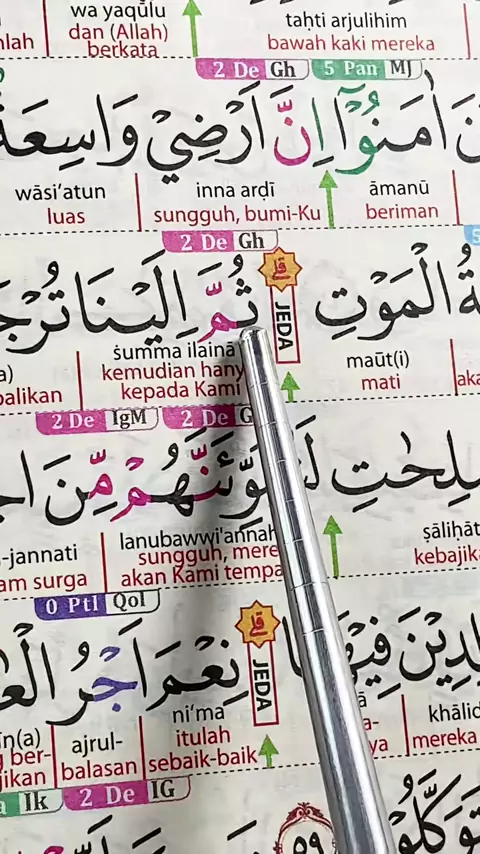 wa yaqūlu tahti arjulihim
dan (Allah) bawah kaki mereka
berkata
2 De Gh 5 Pan MJ
اٰمَنُوْٓا اِنَّ اَرْضِيْ وَاسِعَةٌ
wāsi'atun inna arḍī āmanū
luas sungguh, bumi-Ku beriman
2 De Gh
الْمَوْتِ ثُمَّ اِلَيْنَا
JEDA
ṡumma ilainā maūt(i)
kemudian hany mati
kepada Kami
2 De IgM 2 De G
لَنُبَوِّئَنَّهُمْ مِّنَ
-jannati lanubawwi'annah ṣāliḥāt
am surga sungguh, mere kebajik
akan Kami tempa
0 Ptl Qol
فِيْهَا نِعْمَ اَجْرُ
JEDA
īn(a) ajrul- ni'ma khālid
balasan itulah mereka
sebaik-baik
Ik 2 De IG
٥٩